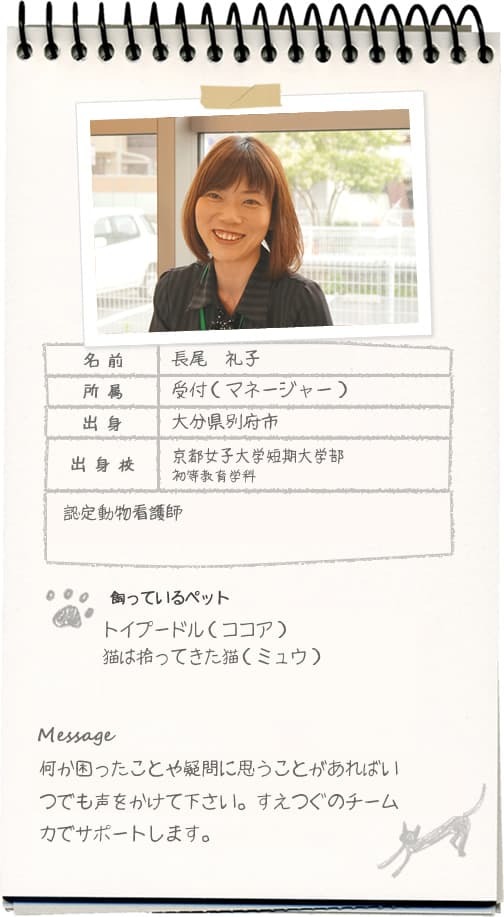 名前 長尾 礼子
所属 受付(マネージャー)
出身 大分県別府市
出身校 京都女子大学短期大学部
初等教育学科
認定動物看護師
飼っているペット
トイプードル(ココア)
猫は拾ってきた猫(ミュウ)
Message
何か困ったことや疑問に思うことがあればい
つでも声をかけて下さい。すえつぐのチーム
力でサポートします。